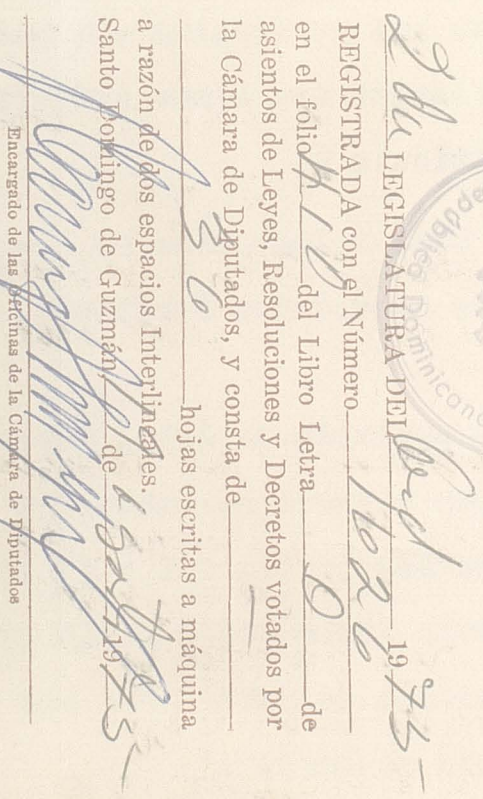 2da LEGISLATURA DEL Ord 1973
REGISTRADA con el Número 1626
en el folio 410 del Libro Letra O de
asientos de Leyes, Resoluciones y Decretos votados por
la Cámara de Diputados, y consta de
36 hojas escritas a máquina
a razón de dos espacios Interlineales.
Santo Domingo de Guzmán, de 1973
Encargado de las Oficinas de la Cámara de Diputados
República Dominicana